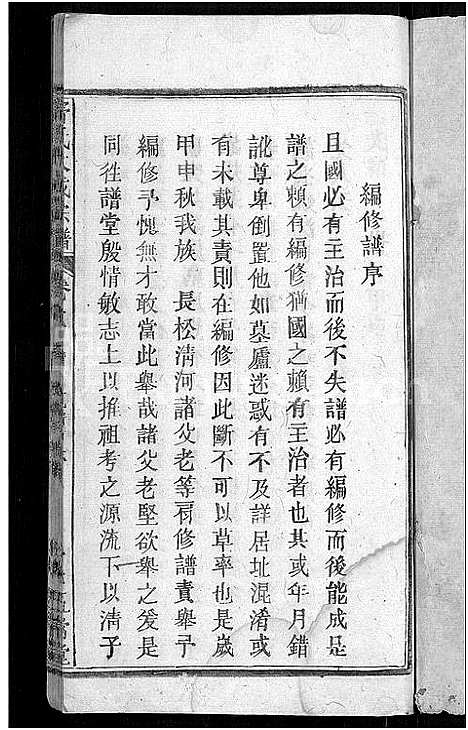 編修譜序
且國必有主治而後不失譜必有編修而後能成是
譜之賴有編修猶國之賴有主治者也其或年月錯
訛尊卑倒置他如墓廬迷惑有不及詳居址混淆或
有未載其責則在編修因此斷不可以草率也是歲
甲申秋我族 長松清河諸父老等有修譜責舉予
編修予愧無才敢當此舉哉諸父老堅欲舉之爰是
同徃譜堂殷情敏志上以推祖考之源流下以清子